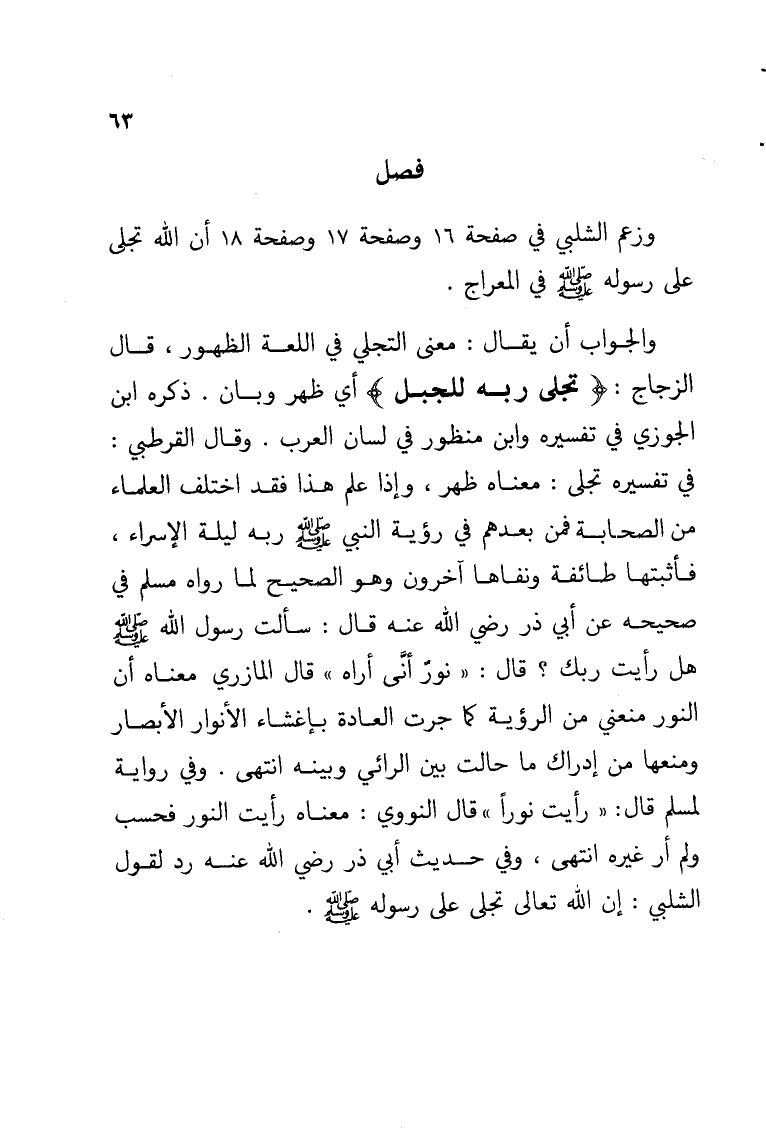 ٦٣
فصل
وزعم الشلبي في صفحة ١٦ وصفحة ١٧ وصفحة ١٨ أن الله تجلى
على رسوله ﷺ في المعراج .
والجواب أن يقال : معنى التجلي في اللعة الظهور ، قال
الزجاج : ﴿ تجلى ربه للجبل ﴾ أي ظهر وبان . ذكره ابن
الجوزي في تفسيره وابن منظور في لسان العرب . وقال القرطبي :
في تفسيره تجلى : معناه ظهر ، وإذا علم هذا فقد اختلف العلماء
من الصحابة فمن بعدهم في رؤية النبي ﷺ ربه ليلة الإسراء ،
فأثبتها طائفة ونفاها آخرون وهو الصحيح لما رواه مسلم في
صحيحه عن أبي ذر رضي الله عنه قال : سألت رسول الله ﷺ
هل رأيت ربك ؟ قال : « نورٌ أنَّى أراه » قال المازري معناه أن
النور منعني من الرؤية كما جرت العادة بإغشاء الأنوار الأبصار
ومنعها من إدراك ما حالت بين الرائي وبينه انتهى . وفي رواية
لمسلم قال: « رأيت نوراً » قال النووي : معناه رأيت النور فحسب
ولم أر غيره انتهى ، وفي حديث أبي ذر رضي الله عنه رد لقول
الشلبي : إن الله تعالى تجلى على رسوله ﷺ .